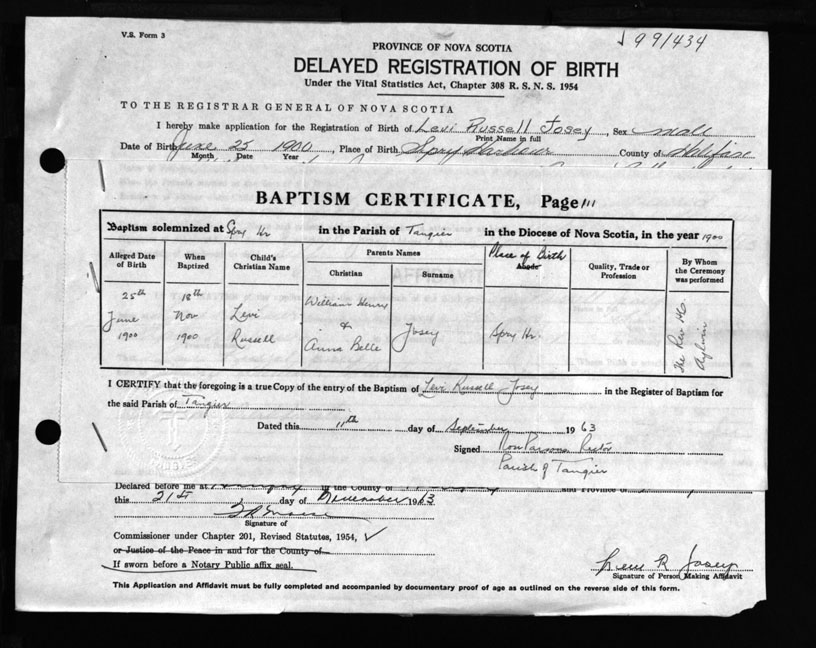 V.S. Form 3
991434
PROVINCE OF NOVA SCOTIA
DELAYED REGISTRATION OF BIRTH
Under the Vital Statistics Act, Chapter 308 R. S. N. S. 1954
TO THE REGISTRAR GENERAL OF NOVA SCOTIA
I hereby make application for the Registration of Birth of Levi Russell Josey, Sex male
Print Name in full
Date of Birth June 25 1900, Place of Birth Spry Harbour County of Halifax
Month Date Year
BAPTISM CERTIFICATE, Page 111
Baptism solemnized at Spry Hr in the Parish of Tangier in the Diocese of Nova Scotia, in the year 1900
Alleged Date of Birth
When Baptized
Child's Christian Name
Parents Names
Christian
Surname
Place of Birth
Abode
Quality, Trade or Profession
By Whom the Ceremony was performed
25th June 1900
18th Nov 1900
Levi Russell
William Henry & Anna Belle
Josey
Spry Hr.
The Rev
I CERTIFY that the foregoing is a true Copy of the entry of the Baptism of Levi Russell Josey in the Register of Baptism for
the said Parish of Tangier
Dated this 11th day of September 1963
Signed Parsons
Parish of Tangier
Declared before me at in the County of and Province of
this 21st day of November 1963
Signature of
Commissioner under Chapter 201, Revised Statutes, 1954, ✓
or Justice of the Peace in and for the County of
If sworn before a Notary Public affix seal.
Levi R Josey
Signature of Person Making Affidavit
This Application and Affidavit must be fully completed and accompanied by documentary proof of age as outlined on the reverse side of this form.